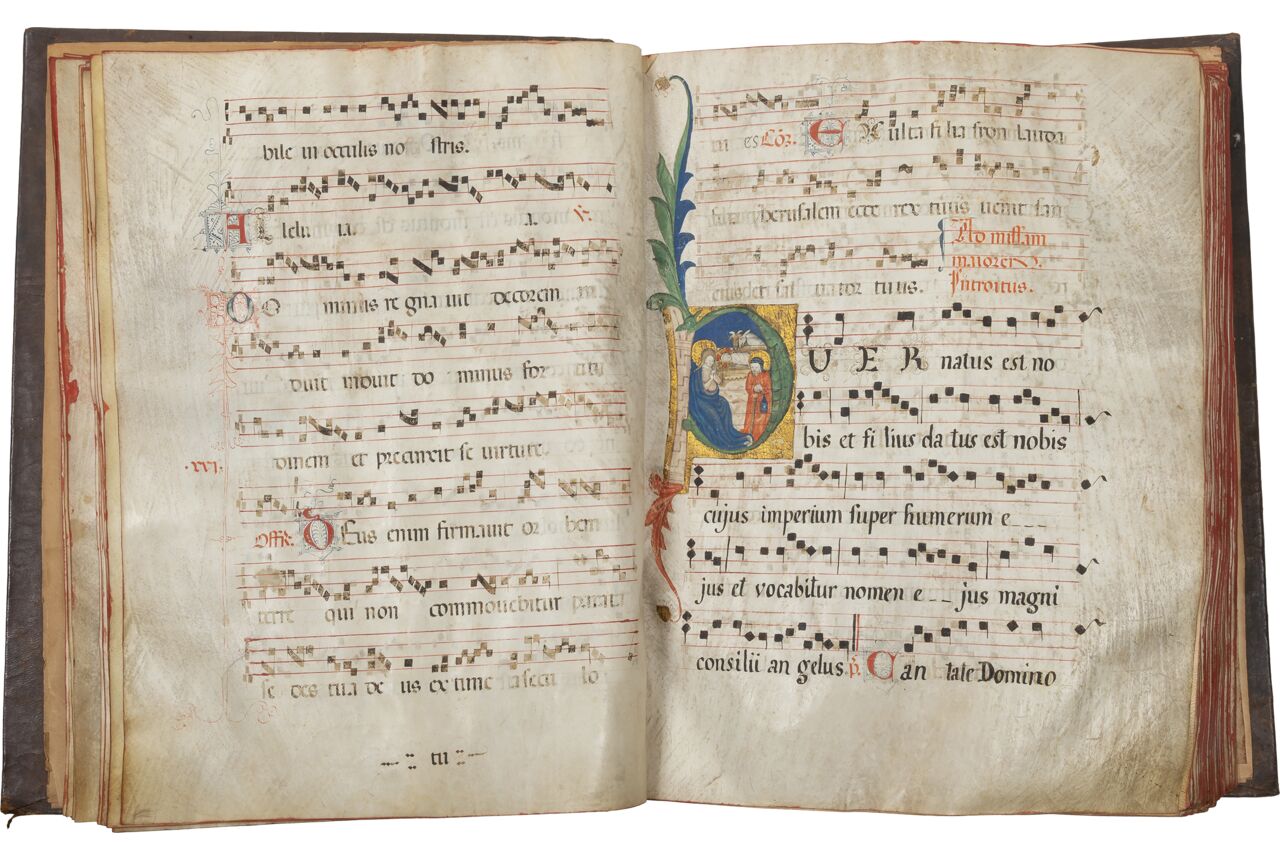 bile in occulis no stris.
ALlelu ia. a. ℣.
DO minus re gna uit decorem in
duit induit do minus for titu
dinem et precinxit se uirtute.
·xvi·
Offȝ. DEus enim firmauit or bem
terre qui non commouebitur parata
se des tua de us ex tunc a secu lo
tu
es Cōȝ. EXulta filia syon lauda
filia yherusalem ecce rex tuus uenit san
Ad missam
maiorem.
Introitus.
PUER natus est no
bis et fi lius da tus est nobis
cujus imperium super humerum e___
jus et vocabitur nomen e__jus magni
consilii an gelus. p. Can tate Domino